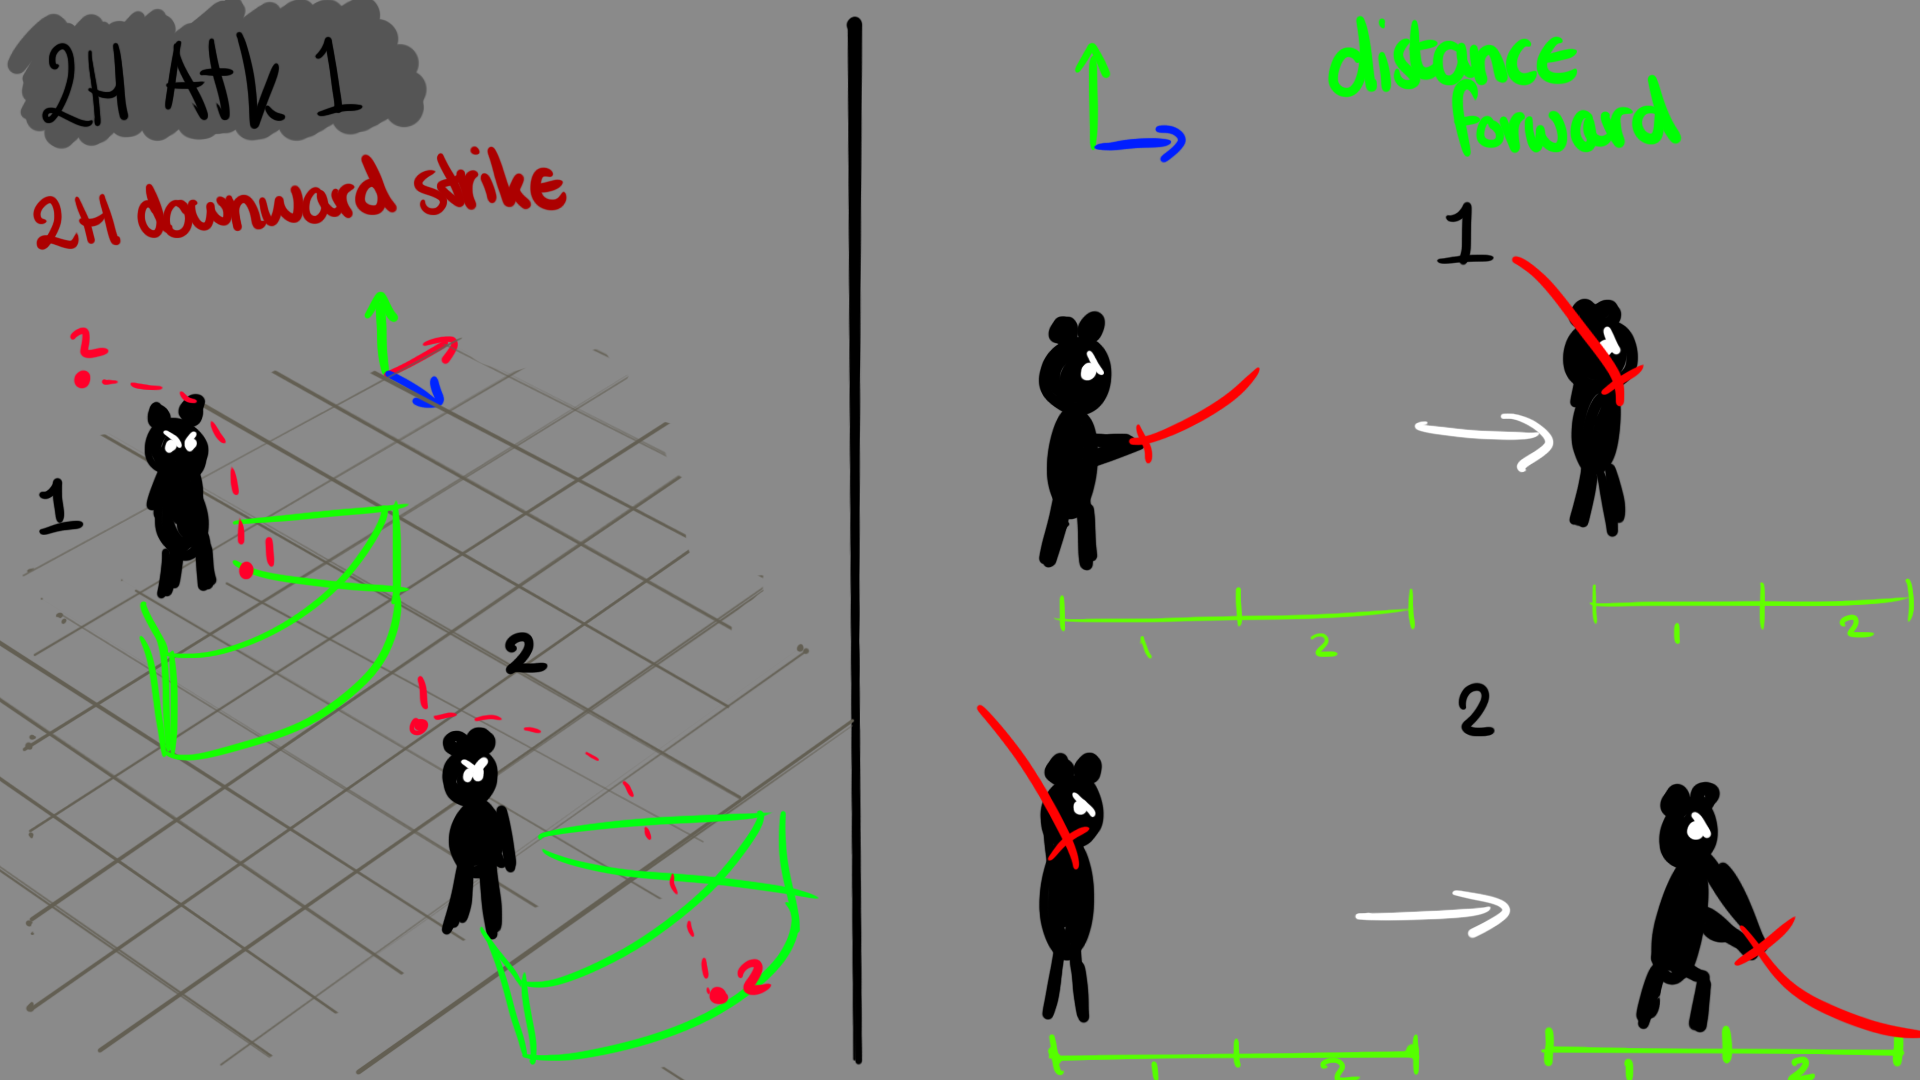 2H Atk 1
2H downward strike
2
1
1
2
1
2
distance
forward
1
1
2
1
2
2
1
2
1
2